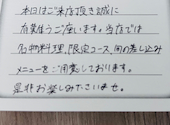 本日はご来店頂き誠に
有難うございます。当店では
名物料理、限定コース、旬の差し込み
メニューをご用意しております。
是非お楽しみ下さいませ。